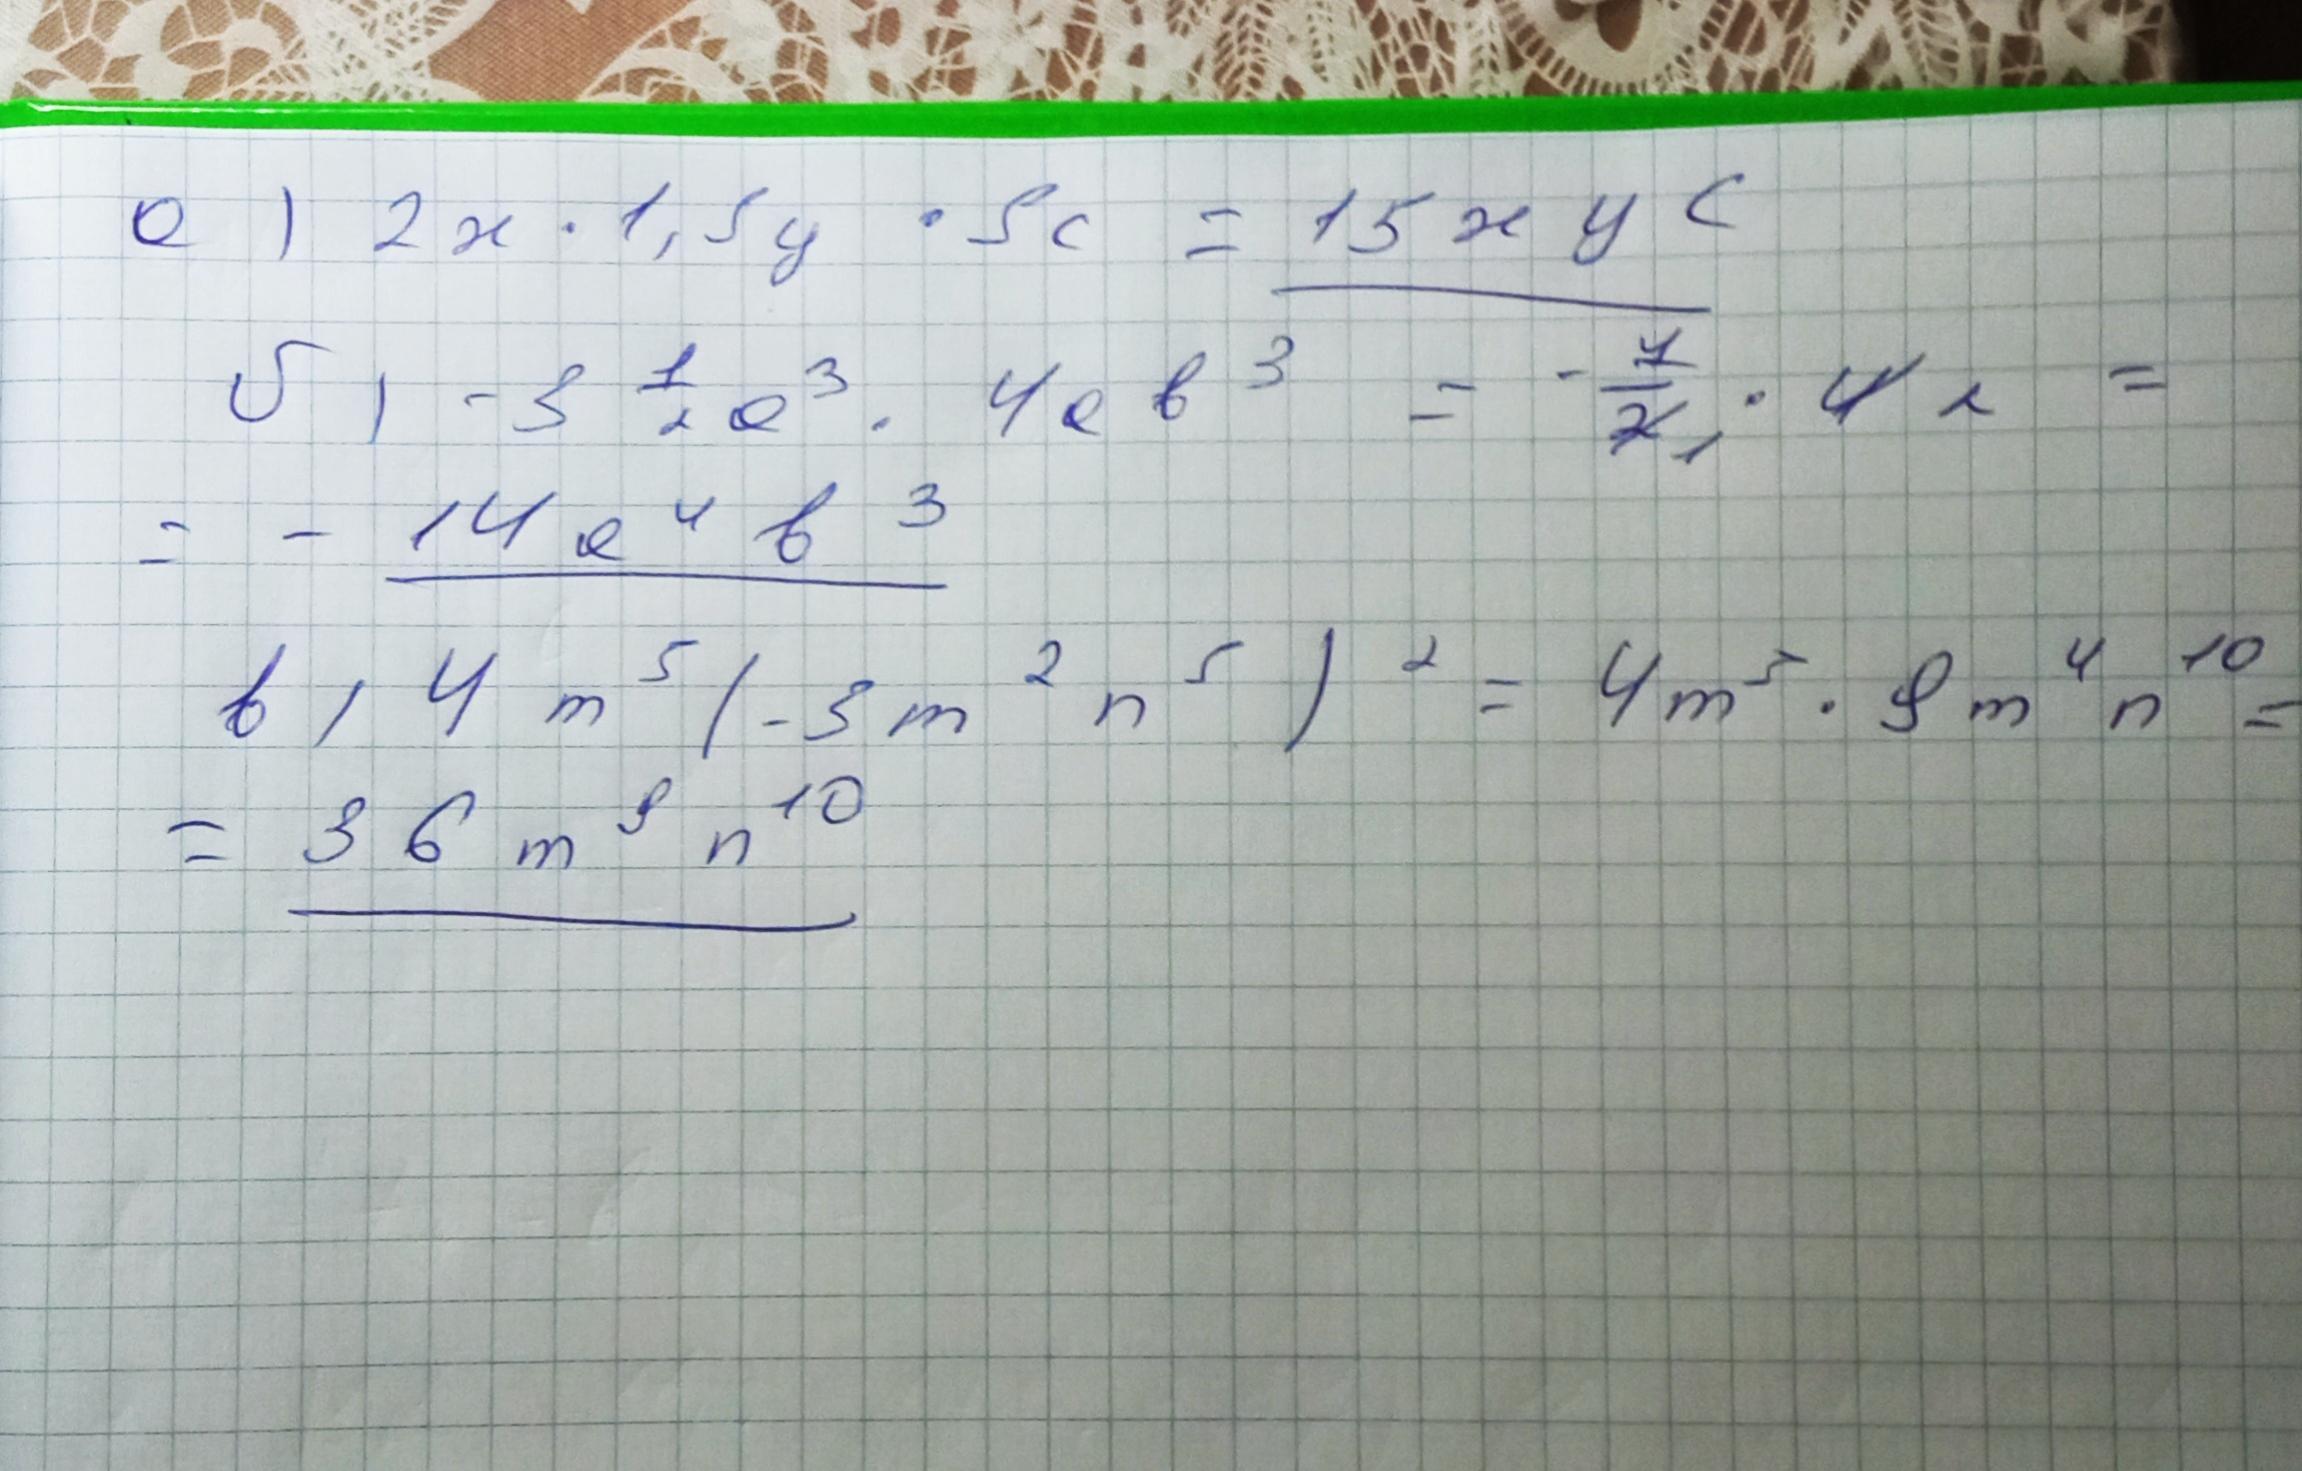 а) 2x · 1,5y · 5c = 15xyc
б) -3 1/2 a³ · 4ab³ = - 7/2 1 · 4 2 =
= - 14a⁴b³
в) 4m⁵(-3m²n⁵)² = 4m⁵ · 9m⁴n¹⁰ =
= 36m⁹n¹⁰